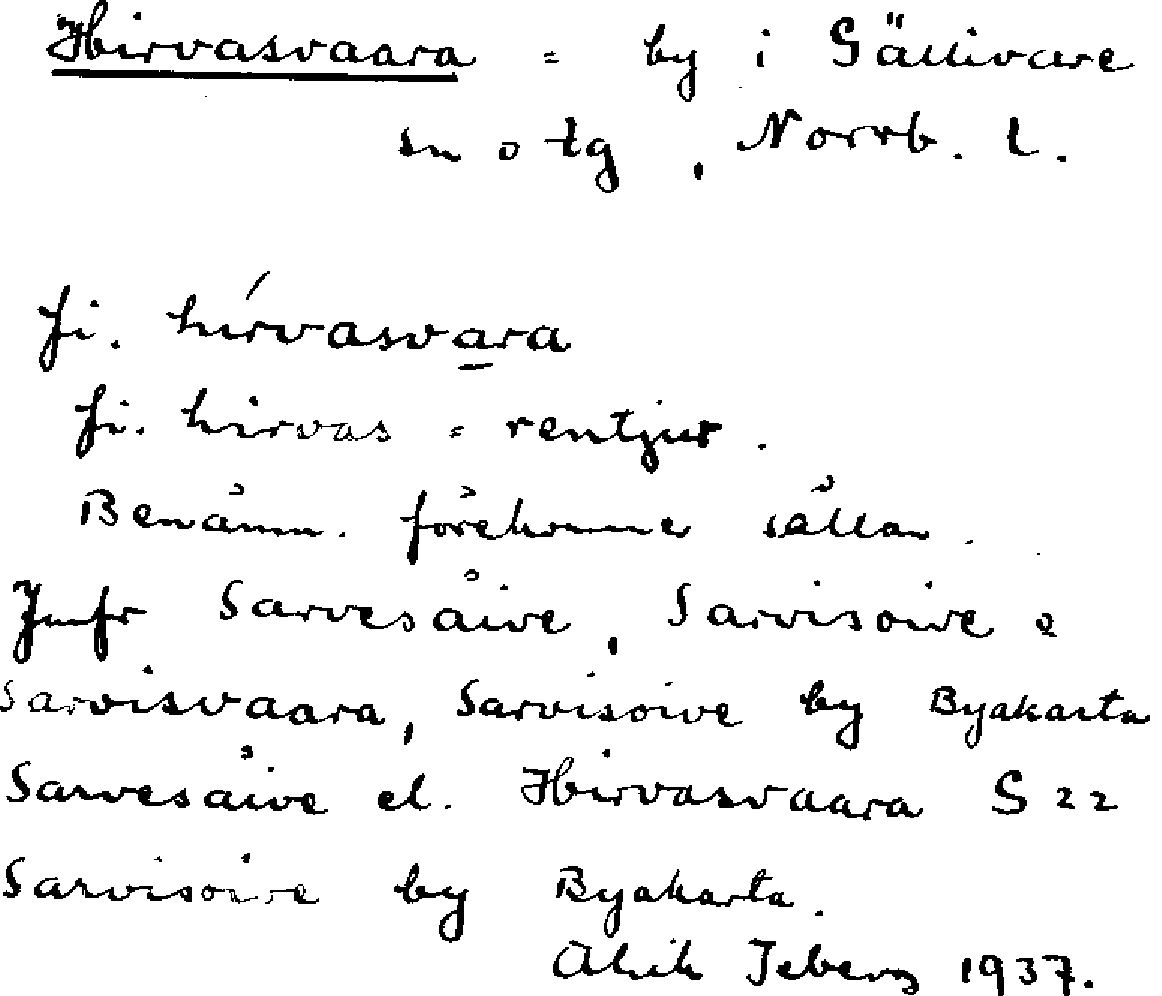 Hirvasvaara = by i Gällivare
sn o tg, Norrb. l.
fi. hírvasva̲ra
fi. hirvas = rentjur.
Benämn. förekommer sällan.
Jmfr Sarvesåive, Sarvisoive e
Sarvisvaara, Sarvisoive by Byakarta
Sarvesåive el. Hirvasvaara S 22
Sarvisoive by Byakarta.
1937.